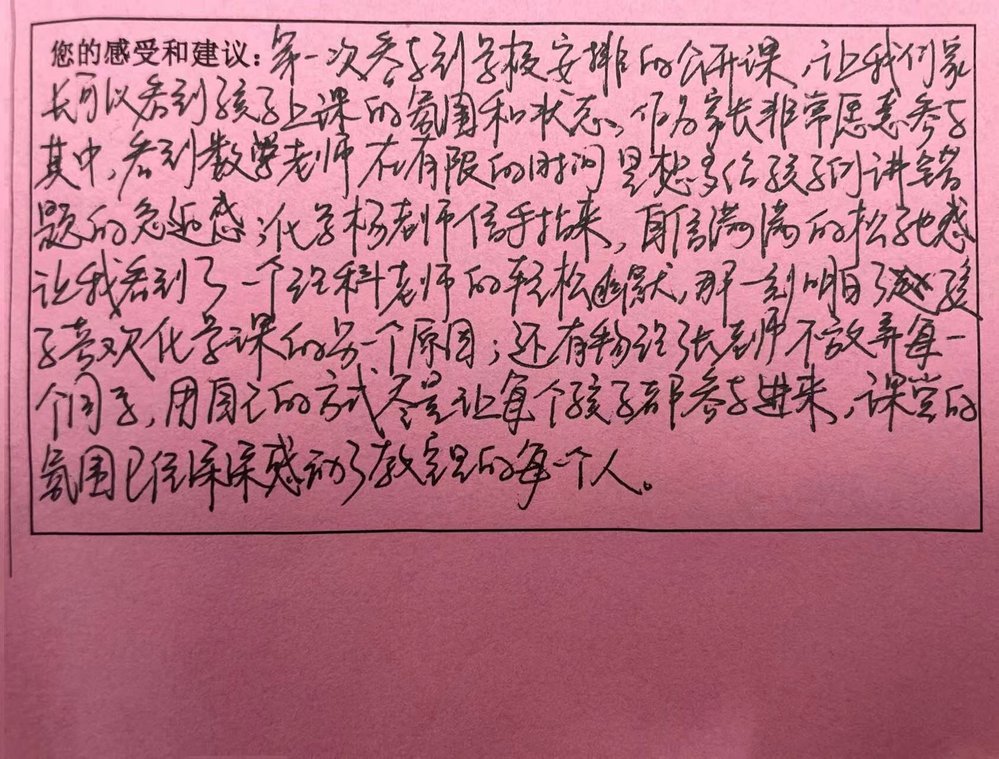 您的感受和建议：第一次参与到学校安排的公开课，让我们家
长可以看到孩子上课的氛围和状态，作为家长非常愿意参与
其中，看到数学老师在有限的时间里想多给孩子们讲错
题的急迫感；化学杨老师信手拈来，自信满满的松弛感
让我看到了一个理科老师的轻松幽默，那一刻明白了孩
子喜欢化学课的另一个原因；还有物理张老师不放弃每一
个同学，用自己的方式尽量让每个孩子都参与进来，课堂的
氛围已经深深感动了教室里的每一个人。